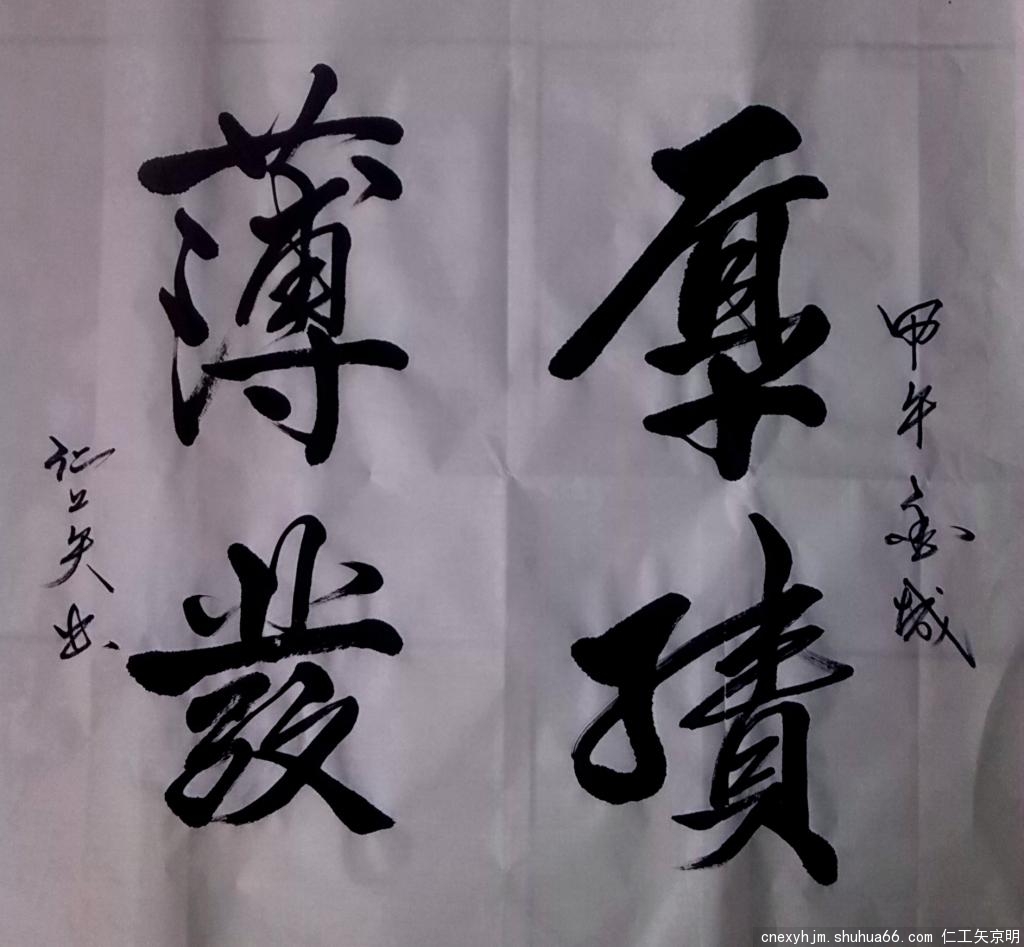 甲午金城
厚積
薄發
仁工矢书
cnexyhjm.shuhua66.com 仁工矢京明